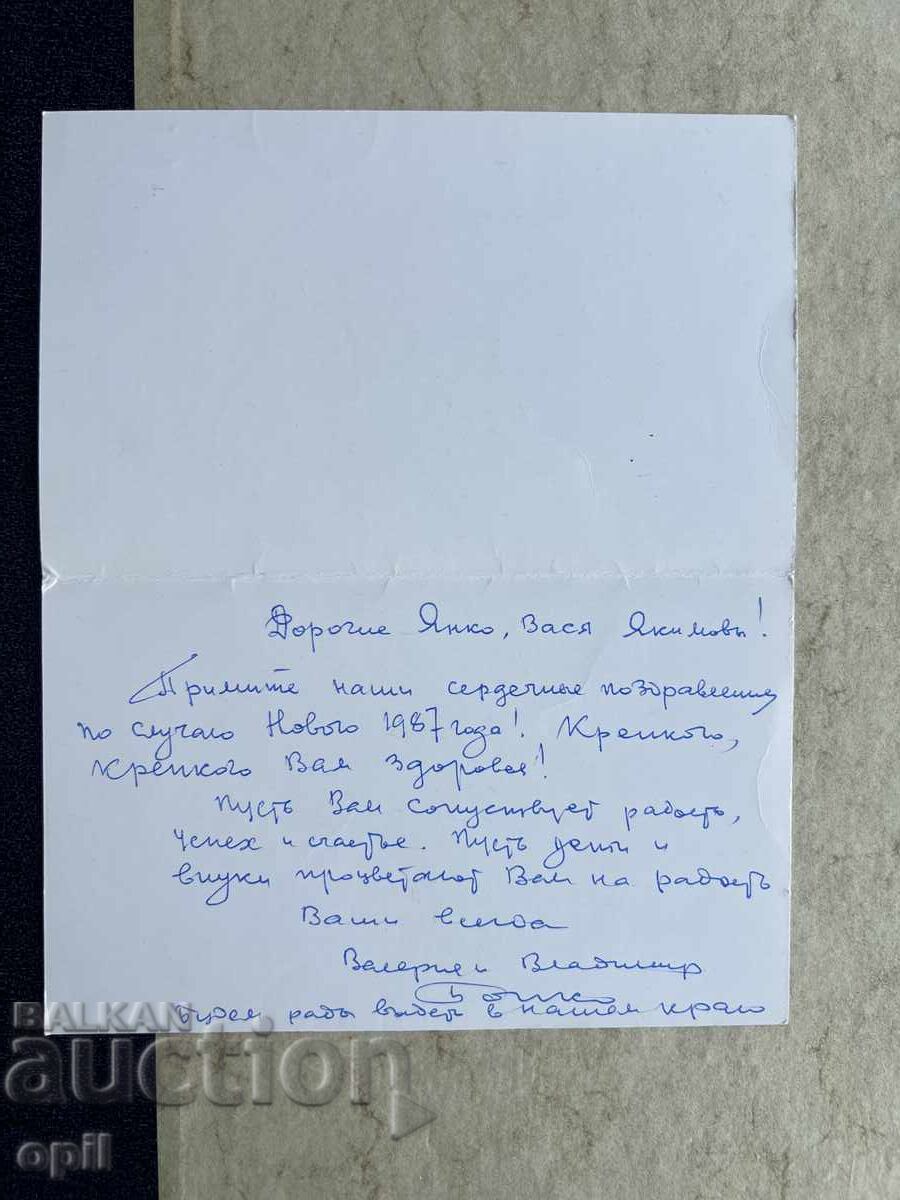 Дорогие Янко, Вася Якимовы!
Примите наши сердечные поздравления
по случаю Нового 1987 года! Крепкого,
крепкого Вам здоровья!
Пусть Вам сопутствует радость,
успех и счастье. Пусть дети и
внуки процветают Вам на радость
Ваши всегда
Валерия и Владимир
Будем рады видеть в нашем краю
BALKAN
auction
opil